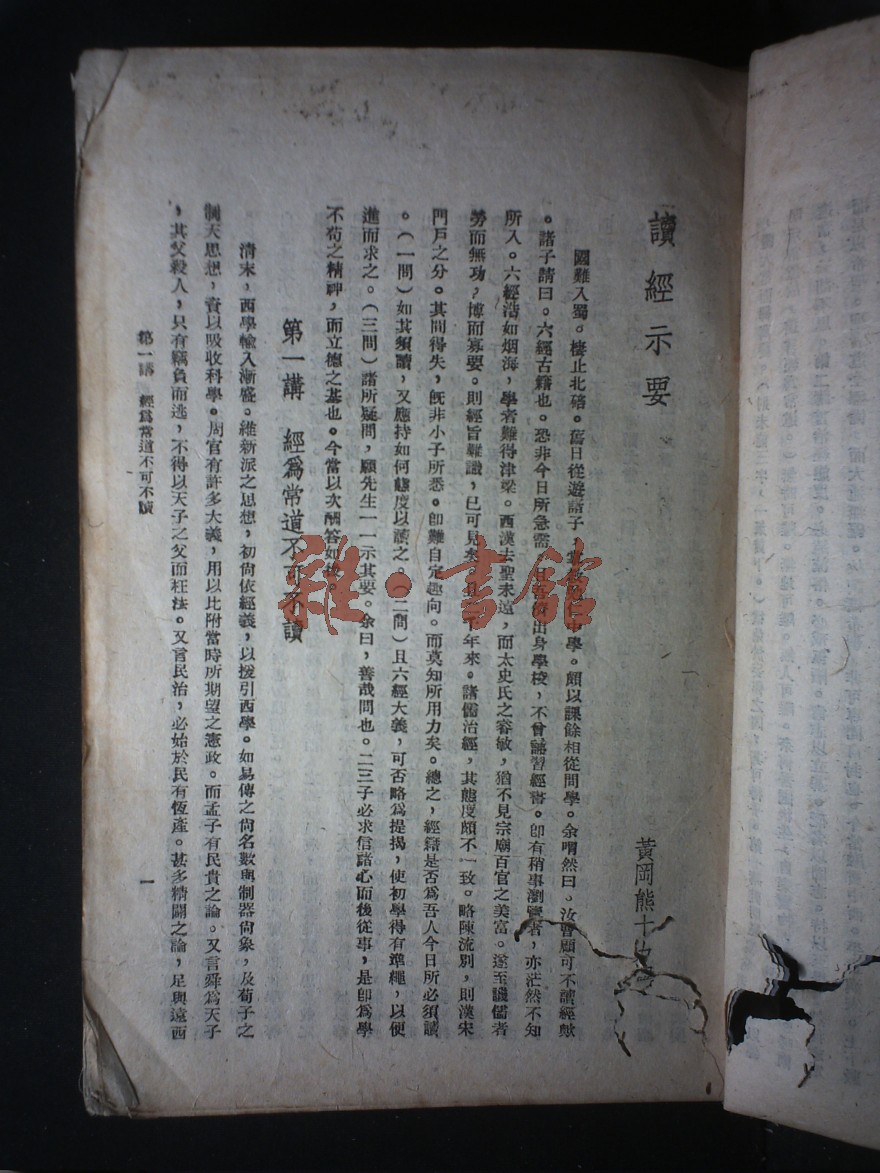 讀經示要
黃岡熊十
國難入蜀。棲止北碚。舊日從遊諸子，中學。頗以課餘相從問學。余喟然曰。汝曹顧可不讀經歟
。諸子請曰。六經古籍也。恐非今日所急需。且出身學校，不曾誦習經書。卽有稍事瀏覽者，亦茫然不知
所入。六經浩如烟海，學者難得津梁。西漢去聖未遠，而太史氏之睿敏，猶不見宗廟百官之美富。遂至譏儒者
勞而無功，博而寡要。則經旨難識，已可見矣。年來。諸儒治經，其態度頗不一致。略陳流別，則漢宋
門戶之分。其間得失，旣非小子所悉。卽難自定趣向。而莫知所用力矣。總之，經籍是否爲吾人今日所必須讀
。（一問）如其須讀，又應持如何態度以讀之。（二問）且六經大義，可否略爲提揭，使初學得有準繩，以便
進而求之。（三問）諸所疑問，願先生一一示其要。余曰，善哉問也。二三子必求信諸心而後從事，是卽爲學
不苟之精神，而立德之基也。今當以次酬答如後。
第一講　經爲常道不可不讀
清末，西學輸入漸盛。維新派之思想，初尙依經義，以援引西學。如易傳之尙名數與制器尙象，及荀子之
制天思想，資以吸收科學。周官有許多大義，用以比附當時所期望之憲政。而孟子有民貴之論。又言舜爲天子
，其父殺人，只有竊負而逃，不得以天子之父而枉法。又言民治，必始於民有恆產。甚多精闢之論，足與遠西
第一講　經爲常道不可不讀
一
雜·書館